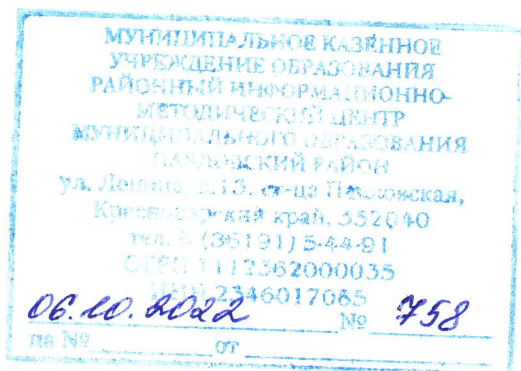 МУНИЦИПАЛЬНОЕ КАЗЕННОЕ
УЧРЕЖДЕНИЕ ОБРАЗОВАНИЯ
РАЙОННЫЙ ИНФОРМАЦИОННО-
МЕТОДИЧЕСКИЙ ЦЕНТР
МУНИЦИПАЛЬНОГО ОБРАЗОВАНИЯ
ПАВЛОВСКИЙ РАЙОН
ул. Ленина, ст-ца Павловская,
Краснодарский край, 352040
тел. 8 (86191) 5-44-91
ОГРН 1112362000035
ИНН 2346017085
06.10.2022 № 758
на № от